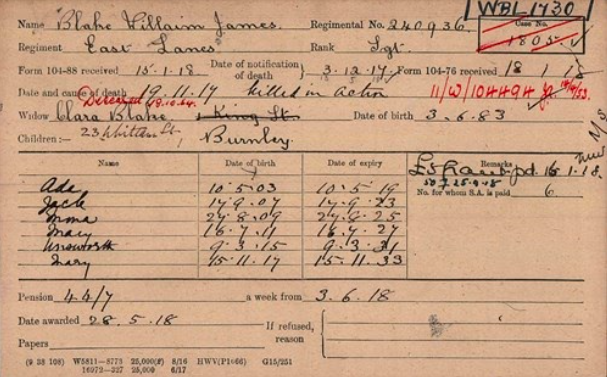 WBL1730
Name Blake Villaim James. Regimental No. 240936. Case No.
Regiment East Lancs Rank Sgt. 1805
Form 104-88 received 15.1.18 Date of notification of death 3.12.17 Form 104-76 received 18 1 18
Date and cause of death 19.11.17 Killed in action 11/W/104494
Deceased 19.10.54.
Widow Clara Blake King St. Date of birth 3.6.83
23 St, Burnley.
Children:—
Name Date of birth Date of expiry Remarks
£5 Grant pd. 16.1.18.
No. for whom S.A. is paid 6
Ada 10.5.03 10.5.19
Jack 17.9.07 17.9.23
Emma 24.8.09 24.8.25
Mary 16.7.11 16.7.27
Unsworth 9.3.15 9.3.31
Mary 15.11.17 15.11.33
Pension 44/7 a week from 3.6.18
Date awarded 28.5.18 If refused, reason
Papers
(9 38 108) W5811—8773 25,000(8) 8/16 HWV(P1066) G15/251
16972—227 25,000 6/17